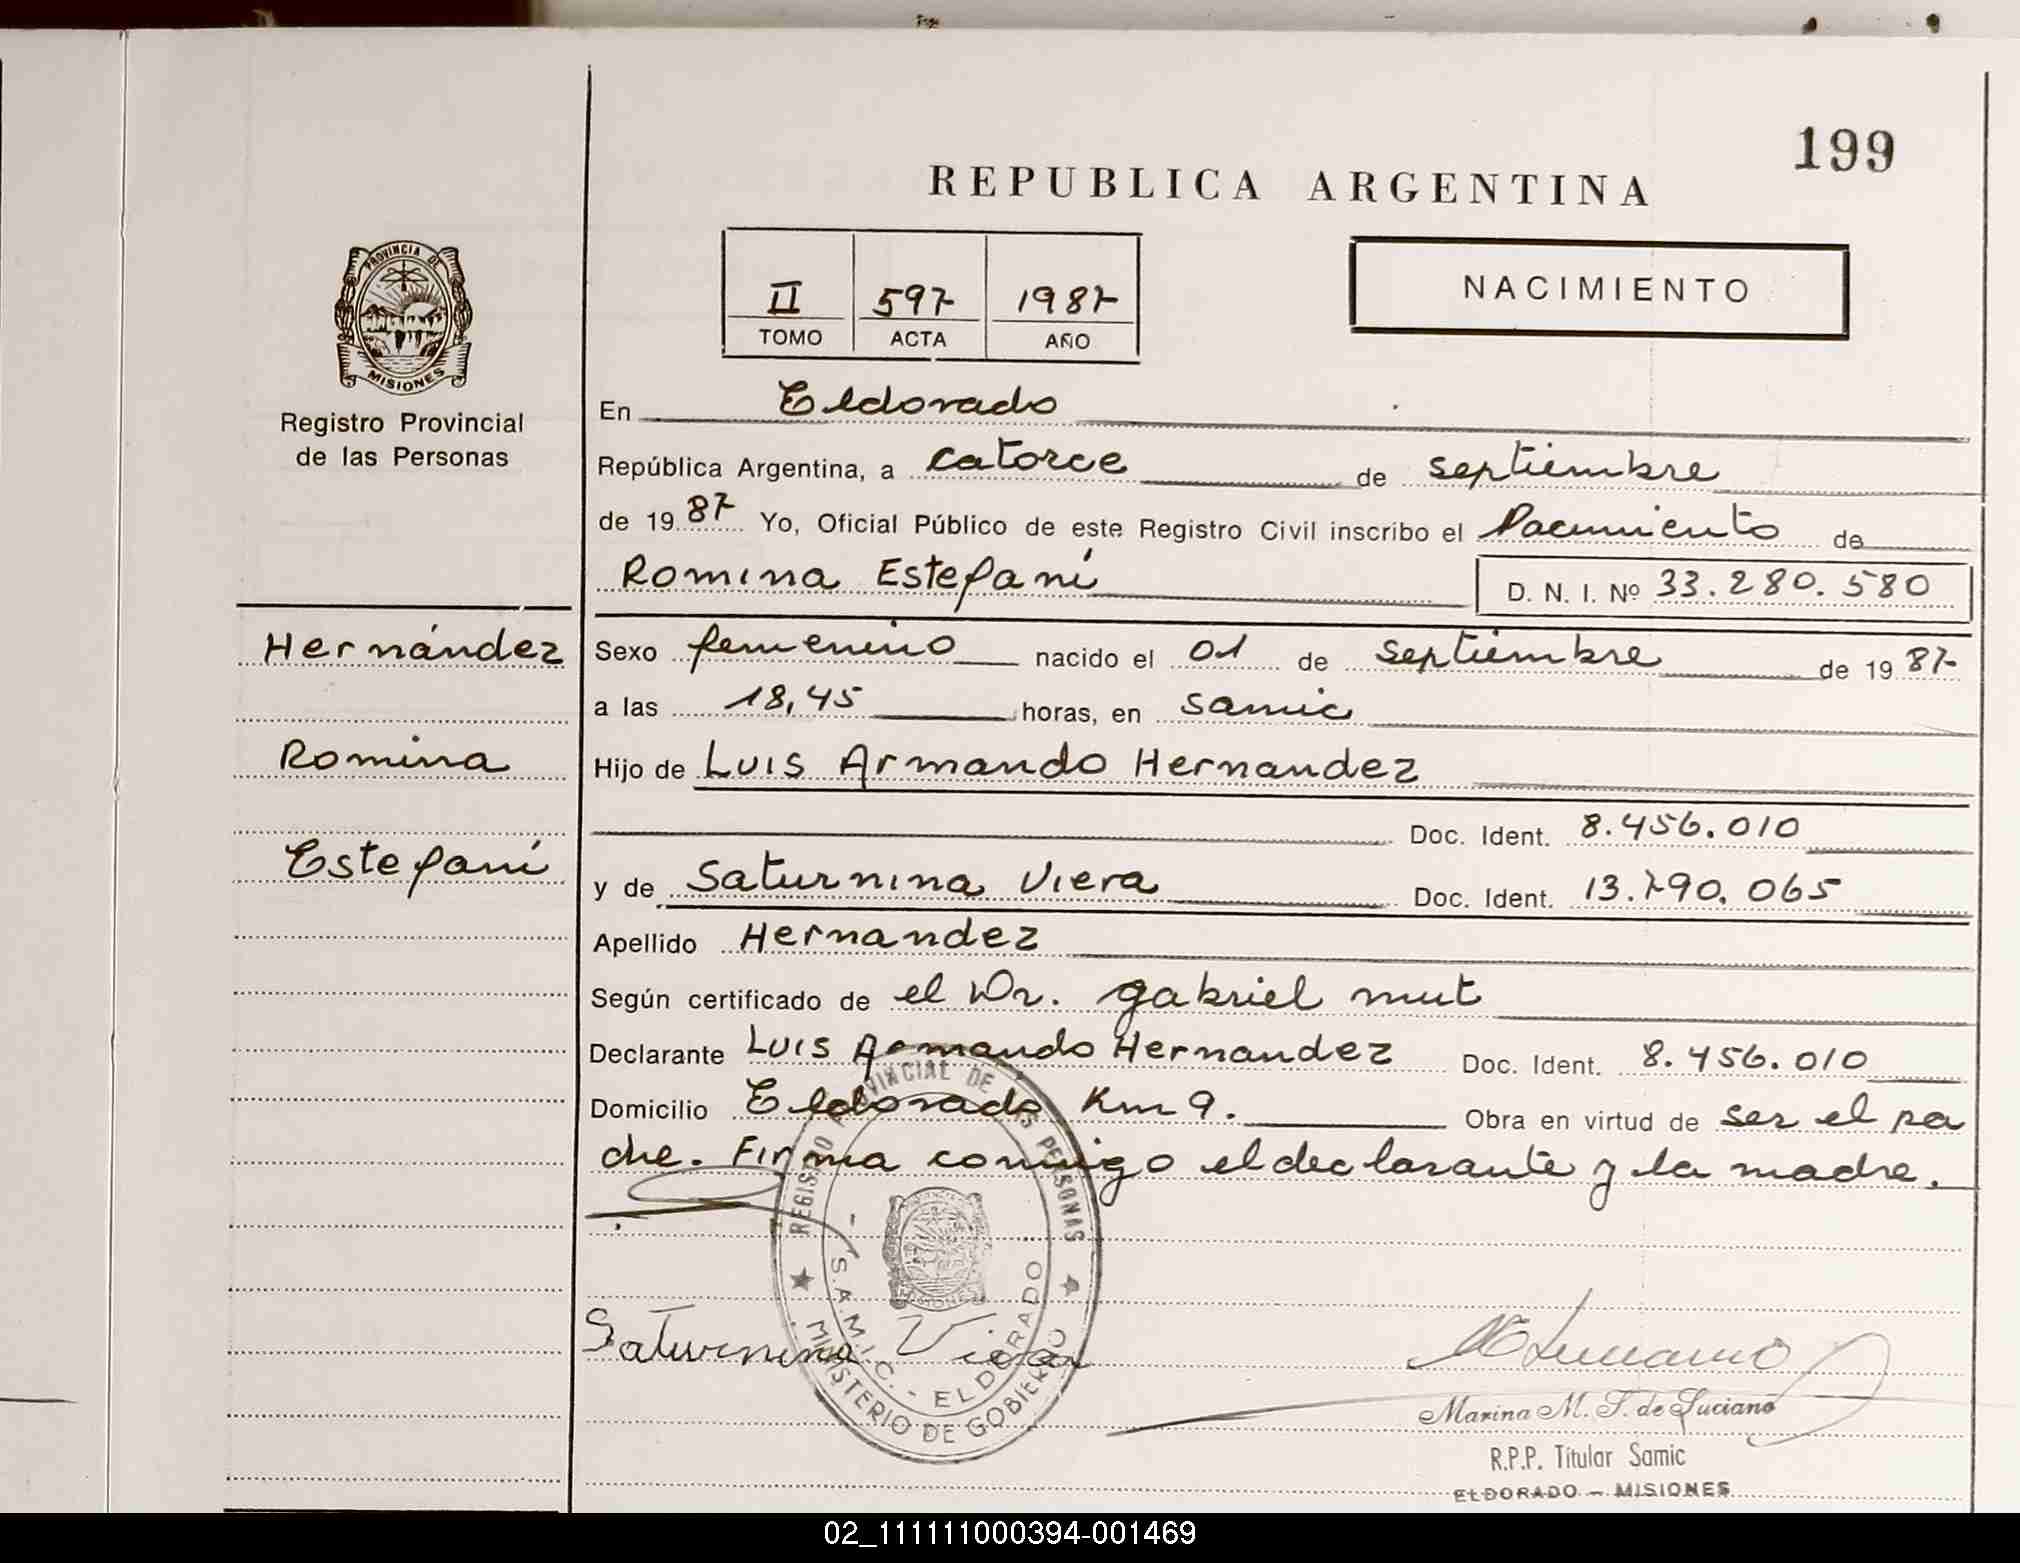 199
REPUBLICA ARGENTINA
PROVINCIA DE
MISIONES
Registro Provincial
de las Personas
II 597 1987
TOMO ACTA AÑO
NACIMIENTO
En Eldorado
República Argentina, a catorce de septiembre
de 1987 Yo, Oficial Público de este Registro Civil inscribo el Nacimiento de
Romina Estefaní D. N. I. Nº 33.280.580
Hernández
Romina
Estefaní
Sexo femenino nacido el 01 de septiembre de 1987
a las 18,45 horas, en Samic
Hijo de Luis Armando Hernandez
Doc. Ident. 8.456.010
y de Saturnina Viera Doc. Ident. 13.790.065
Apellido Hernandez
Según certificado de el Dr. gabriel mut
Declarante Luis Armando Hernandez Doc. Ident. 8.456.010
Domicilio Eldorado Km 9. Obra en virtud de ser el pa
dre. Firma conmigo el declarante y la madre.
REGISTRO PROVINCIAL DE LAS PERSONAS
- S.A.M.I.C. - ELDORADO
MINISTERIO DE GOBIERNO
MISIONES
Saturnina Viera
Marina M. S. de Luciano
R.P.P. Titular Samic
ELDORADO - MISIONES
02_111111000394-001469